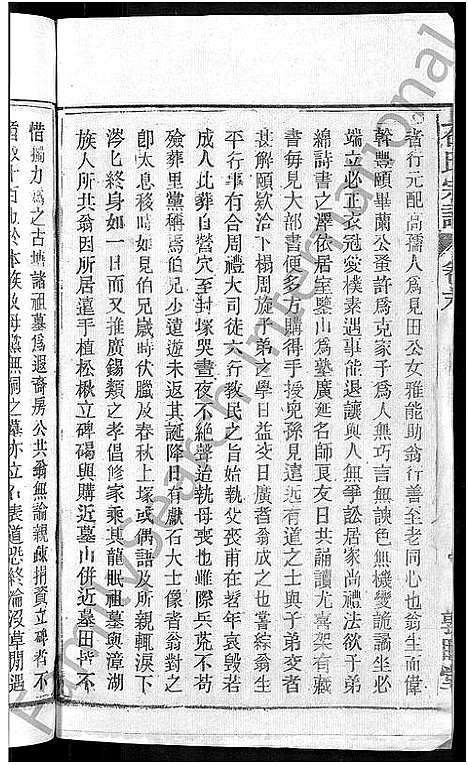 者行元配高孺人爲見田公女雅能助翁行善至老同心也翁生而偉
幹豐頤畢蘭公蚤許爲克家子爲人無巧言無諛色無機變詭譎坐必
端立必正衣冠愛樸素遇事能退讓與人無爭訟居家尚禮法欲子弟
綿詩書之澤依居室鑿山爲塾廣延名師良友日共誦讀尤喜架有藏
書每見大部書便多方購得手授兒孫見遠近有道之士與子弟言文
甚解頤欵洽下榻周旋子弟之學日益交日廣者翁成之也翁
平行事有合周禮大司徒六行教民之旨始執父喪甫在髫年哀毀若
成人此葬自營穴至封塚哭晝夜不絕聲迨執母喪也雖際兵荒不苟
殮葬里黨稱焉伯兄少遠遊未返其誕降日有獻石大士像者翁對之
卽太息移時如見伯兄歲時伏臘及春秋上塚或偶語及所親輒淚下
涔匕終身如一日而又推廣錫類之孝倡修家乘其龍眠祖墓與漳湖
族人所共翁因所居遠手植松楸立碑碣與購近墓山併近墓田皆不
惜獨力爲之古塘諸祖墓爲遐裔房公共翁無論親疎捐資立碑者不
百數十百也於本族及母黨無嗣之墓亦立石表道恐終淪沒草閒遇
氏宗譜
FamilySearch International